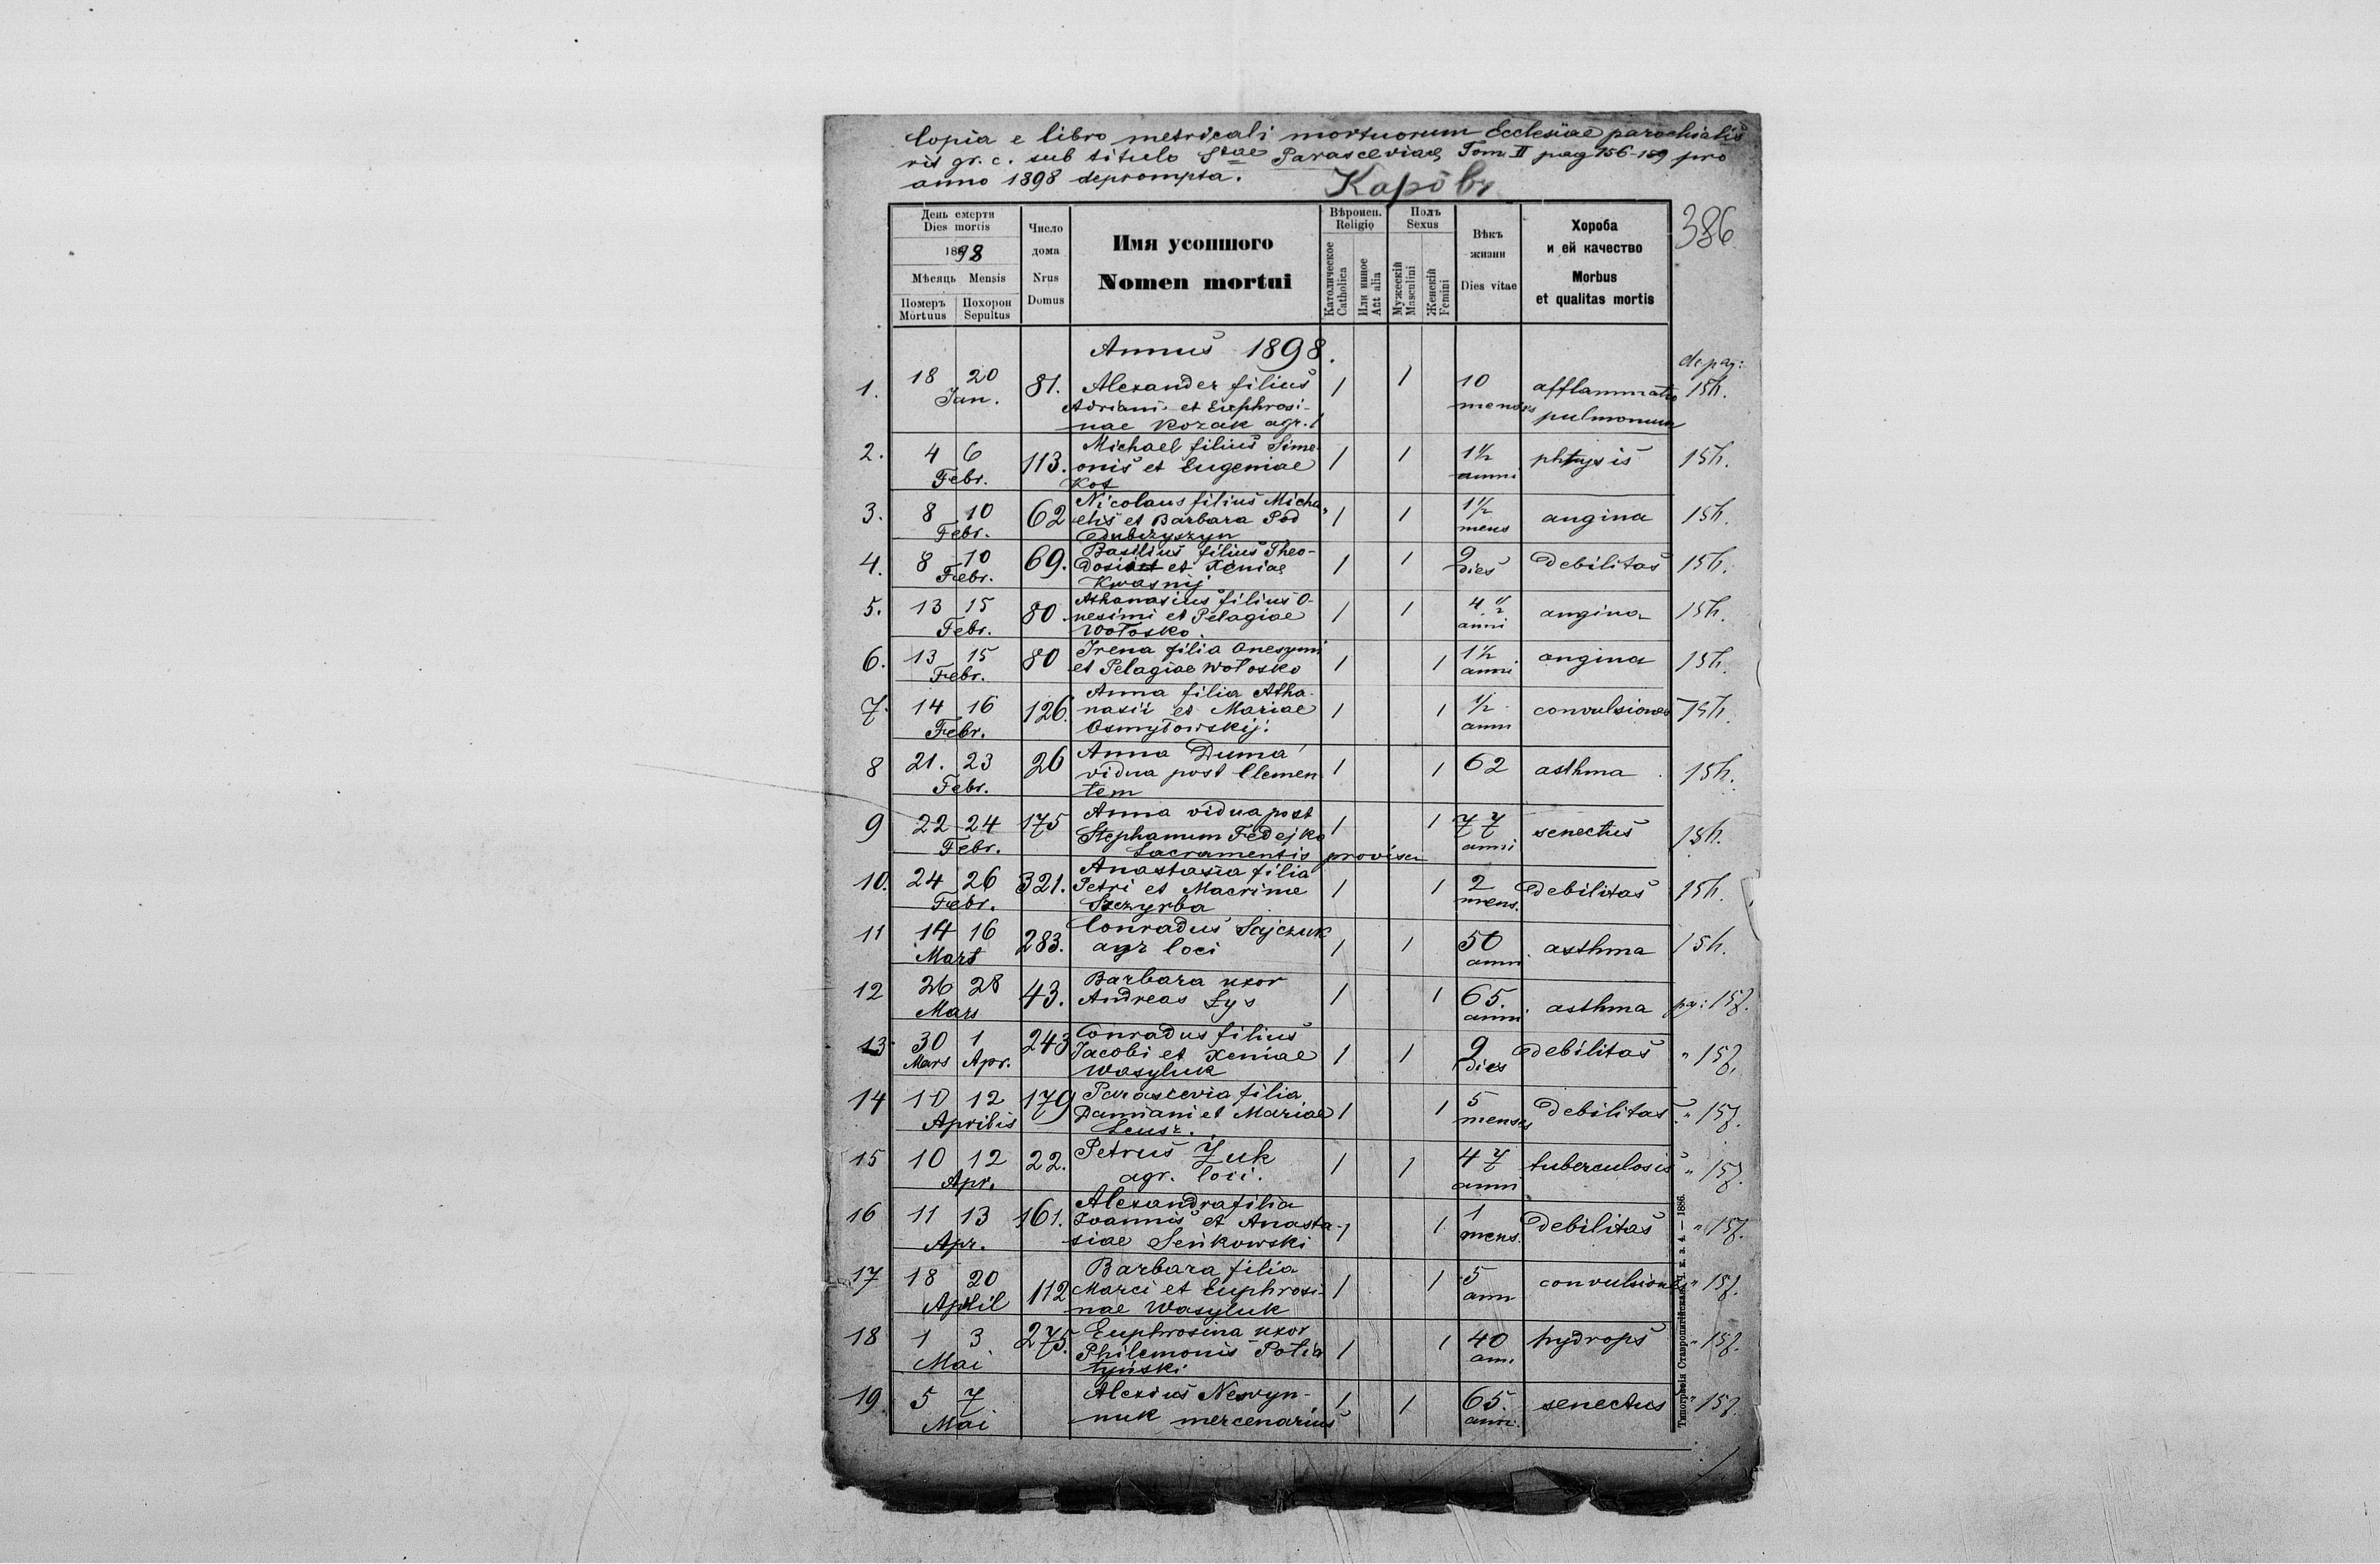 Copia e libro metricali mortuorum Ecclesiae parochialis
rit gr. c. sub titulo Stae Parasceviae Tom II pag 156-159 pro
anno 1898 deprompta.
Карôвъ
386
День смерти
Dies mortis
1898
Мѣсяць Mensis
Померъ Mortuus
Похорон Sepultus
Число дома
Nrus Domus
Имя усопшого
Nomen mortui
Вѣроисп.
Religio
Католическое Catholica
Или инное Aut alia
Полъ
Sexus
Мужескій Masculini
Женскій Femini
Вѣкъ жизни
Dies vitae
Хороба
и ей качество
Morbus
et qualitas mortis
Annus 1898.
1. 18 20 Jan. 81. Alexander filius
Adriani et Euphrosi-
nae Kozak agr. 1 1 10 mensis afflammatio pulmonum
2. 4 6 Febr. 113. Michael filius Sime-
onis et Eugeniae
Kot 1 1 1½ anni phtysis
3. 8 10 Febr. 62 Nicolaus filius Micha-
elis et Barbara Pod
Dubczyszyn 1 1 1½ mens angina
4. 8 10 Febr. 69. Basilius filius Theo-
dosii et Xeniae
Kwasnij 1 1 9 dies Debilitas
5. 13 15 Febr. 80 Athanasius filius O-
nesimi et Pelagiae
Wołosko. 1 1 4½ anni angina
6. 13 15 Febr. 80 Irena filia Onesymi
et Pelagiae Wołosko 1 1 1½ anni angina
7. 14 16 Febr. 126. Anna filia Atha-
nasii et Mariae
Osmyłowskij. 1 1 ½ anni convulsiones
8 21. 23 Febr. 26 Anna Duma
vidua post Clemen-
tem 1 1 62 asthma
9 22 24 Febr. 175 Anna vidua post
Stephanum Fedejko
Sacramentis provisa 1 1 77 anni senectus
10. 24 26 Febr. 321. Anastasia filia
Petri et Macrinae
Szczyrba 1 1 2 mens. Debilitas
11 14 16 Mart 283. Conradus Sajczuk
agr loci 1 1 50 anni asthma
12 26 28 Mars 43. Barbara uxor
Andreas Łys 1 1 65. anni asthma pg: 157.
13 30 1 Mars Apr. 243 Conradus filius
Jacobi et Xeniae
Wasyluk 1 1 9 dies Debilitas " 157.
14 10 12 Aprilis 179 Parascevia filia
Damiani et Mariae 1 1 5 mensis Debilitas " 157.
15 10 12 Apr. 22. Petrus Żuk
agr. loci. 1 1 47 anni tuberculosis " 157.
16 11 13 Apr. 161. Alexandra filia
Joannis et Anasta-
siae Seńkowski 1 1 1 mens. Debilitas " 157.
17 18 20 April 112 Barbara filia
Marci et Euphrosi-
nae Wasyluk 1 1 5 ann convulsiones " 157.
18 1 3 Mai 275. Euphrosina uxor
Philemonis 1 1 40 ann. hydrops " 157.
19 5 7 Mai Alexius
mercenarius 1 1 65. anni. senectus " 157.